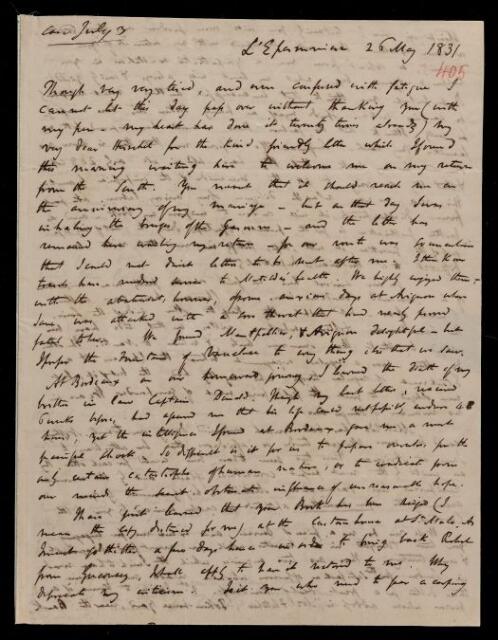 ansd July 3
26 May 1831
405
Though very very tired, and even confused with fatigue I
cannot let this day pass over without thanking you (with
my pen - my heart has done it twenty times already) my
very dear for the kind friendly letter which I found
this morning waiting here to welcome me on my return
from the South. You meant that it should reach me on
the anniversary of my marriage - but on that day I was
inhaling the breezes of the Garonne - and the letter has
remained here awaiting my return - for our route was so uncertain
that I could not direct letters to be sent after me. I think our
travels have rendered service to Matilda's health. We highly enjoyed them -
with the abatement, however, of some anxious days at Avignon where
Jane was attacked with a sore throat that had nearly proved
fatal to her. We found Montpellier, & Avignon delightful - but
I prefer the fountain of Vaucluse to any thing else that we saw.
At Bordeaux on our homeward journey, I learned the death of my
brother in law Captain Donald. Though my last letter, received
6 weeks before, had assured me that his life could not possibly endure 48
hours, yet the intelligence I found at Bordeaux gave me a most
painful shock - so difficult is it for us to prepare ourselves for the
only certain catastrophe of human nature, or to eradicate from
our minds the secret obstinate influence of unreasonable hope.
I have just learned that your Book has been seized (I
mean the copy destined for me) at the Custom house at St Malo. As
I intend go thither a few days hence in order to bring back
from Guernsey, I shall apply to have it restored to me. Why
deprecate my criticism. Is it you who need to fear a carping